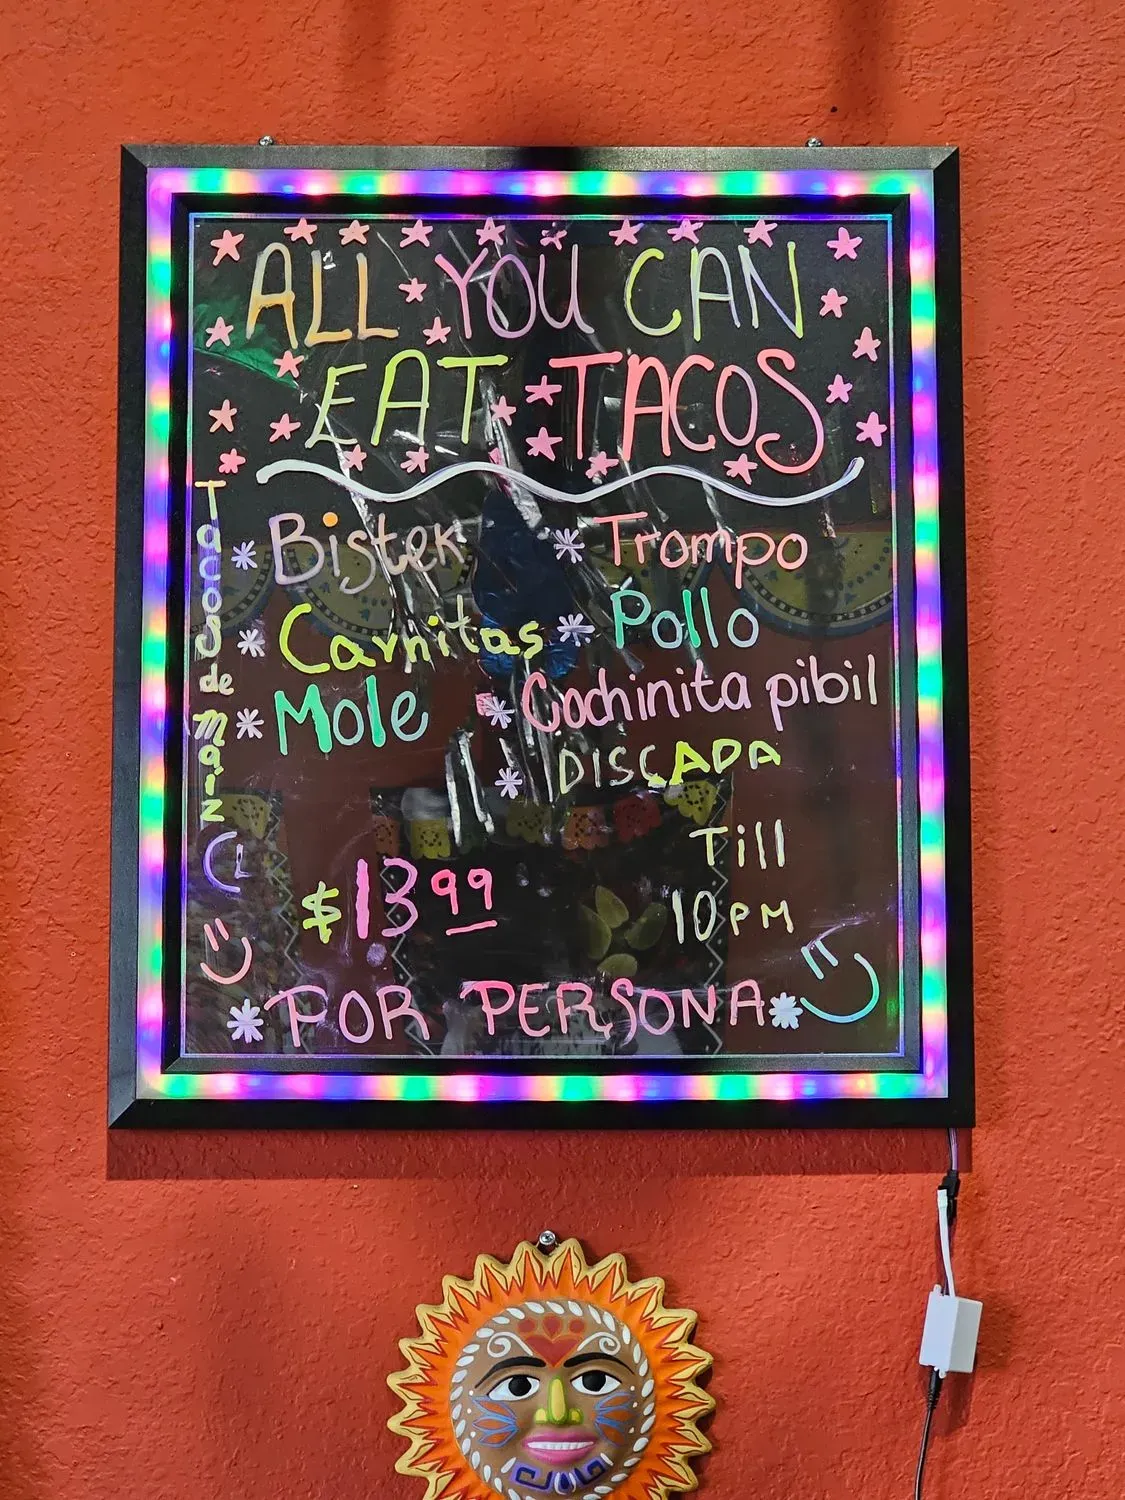 ALL YOU CAN
EAT TACOS
Tacos de Maiz
Bistek * Trompo
* Carnitas * Pollo
* Mole * Cochinita pibil
* DISCADA
$13.99
Till
10PM
* POR PERSONA *